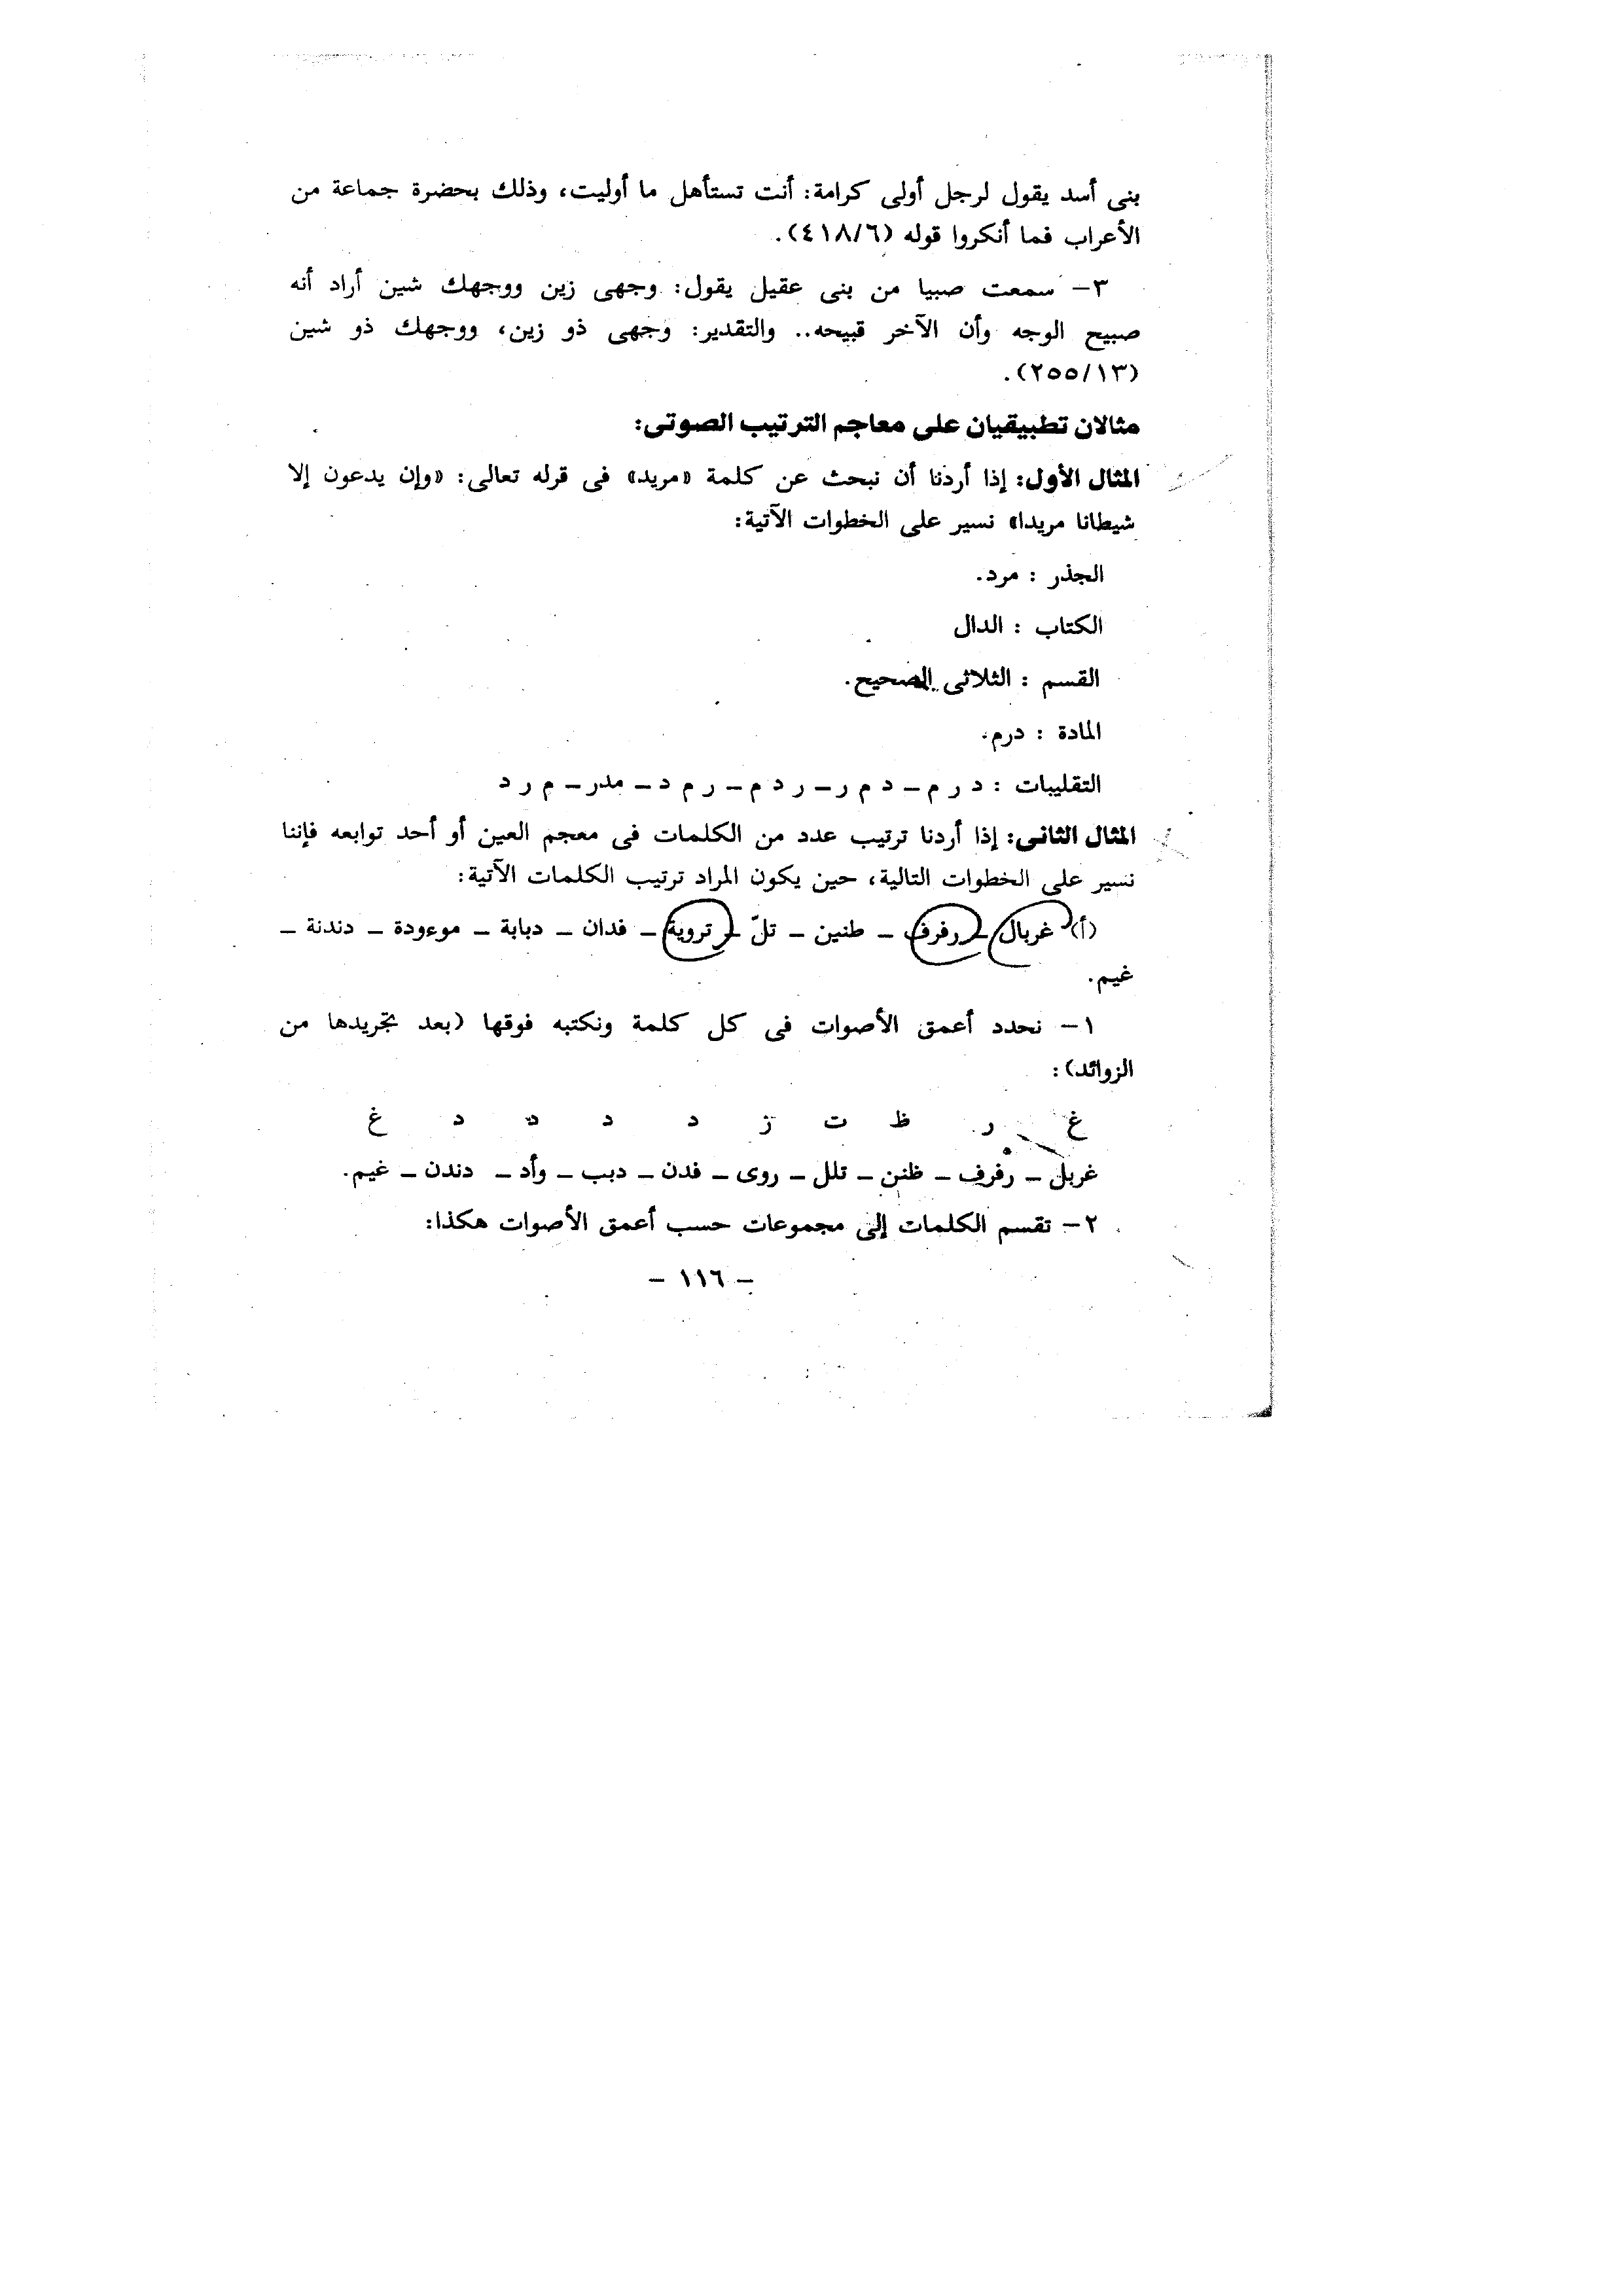 بنى أسد يقول لرجل أولى كرامة: أنت تستأهل ما أوليت، وذلك بحضرة جماعة من
الأعراب فما أنكروا قوله (٤١٨/٦).
٣– سمعت صبيا من بنى عقيل يقول: وجهى زين ووجهك شين أراد أنه
صبيح الوجه وأن الآخر قبيحه.. والتقدير: وجهى ذو زين، ووجهك ذو شين
(٢٥٥/١٣).
مثالان تطبيقيان على معاجم الترتيب الصوتى:
المثال الأول: إذا أردنا أن نبحث عن كلمة «مريد» فى قوله تعالى: «وإن يدعون إلا
شيطانا مريدا» نسير على الخطوات الآتية:
الجذر : مرد.
الكتاب : الدال
القسم : الثلاثى الصحيح.
المادة : درم.
التقليبات : د ر م – د م ر – ر د م – ر م د – مدر – م ر د
المثال الثانى: إذا أردنا ترتيب عدد من الكلمات فى معجم العين أو أحد توابعه فإننا
نسير على الخطوات التالية، حين يكون المراد ترتيب الكلمات الآتية:
(أ) غربال – رفرف – طنين – تلّ – تروية – فدان – دبابة – موءودة – دندنة –
غيم.
١– نحدد أعمق الأصوات فى كل كلمة ونكتبه فوقها (بعد تجريدها من
الزوائد) :
غ ر ظ ت ز د د د د غ
غربل – رفرف – ظنن – تلل – روى – فدن – دبب – وأد – دندن – غيم.
٢– تقسم الكلمات إلى مجموعات حسب أعمق الأصوات هكذا:
– ١١٦ –